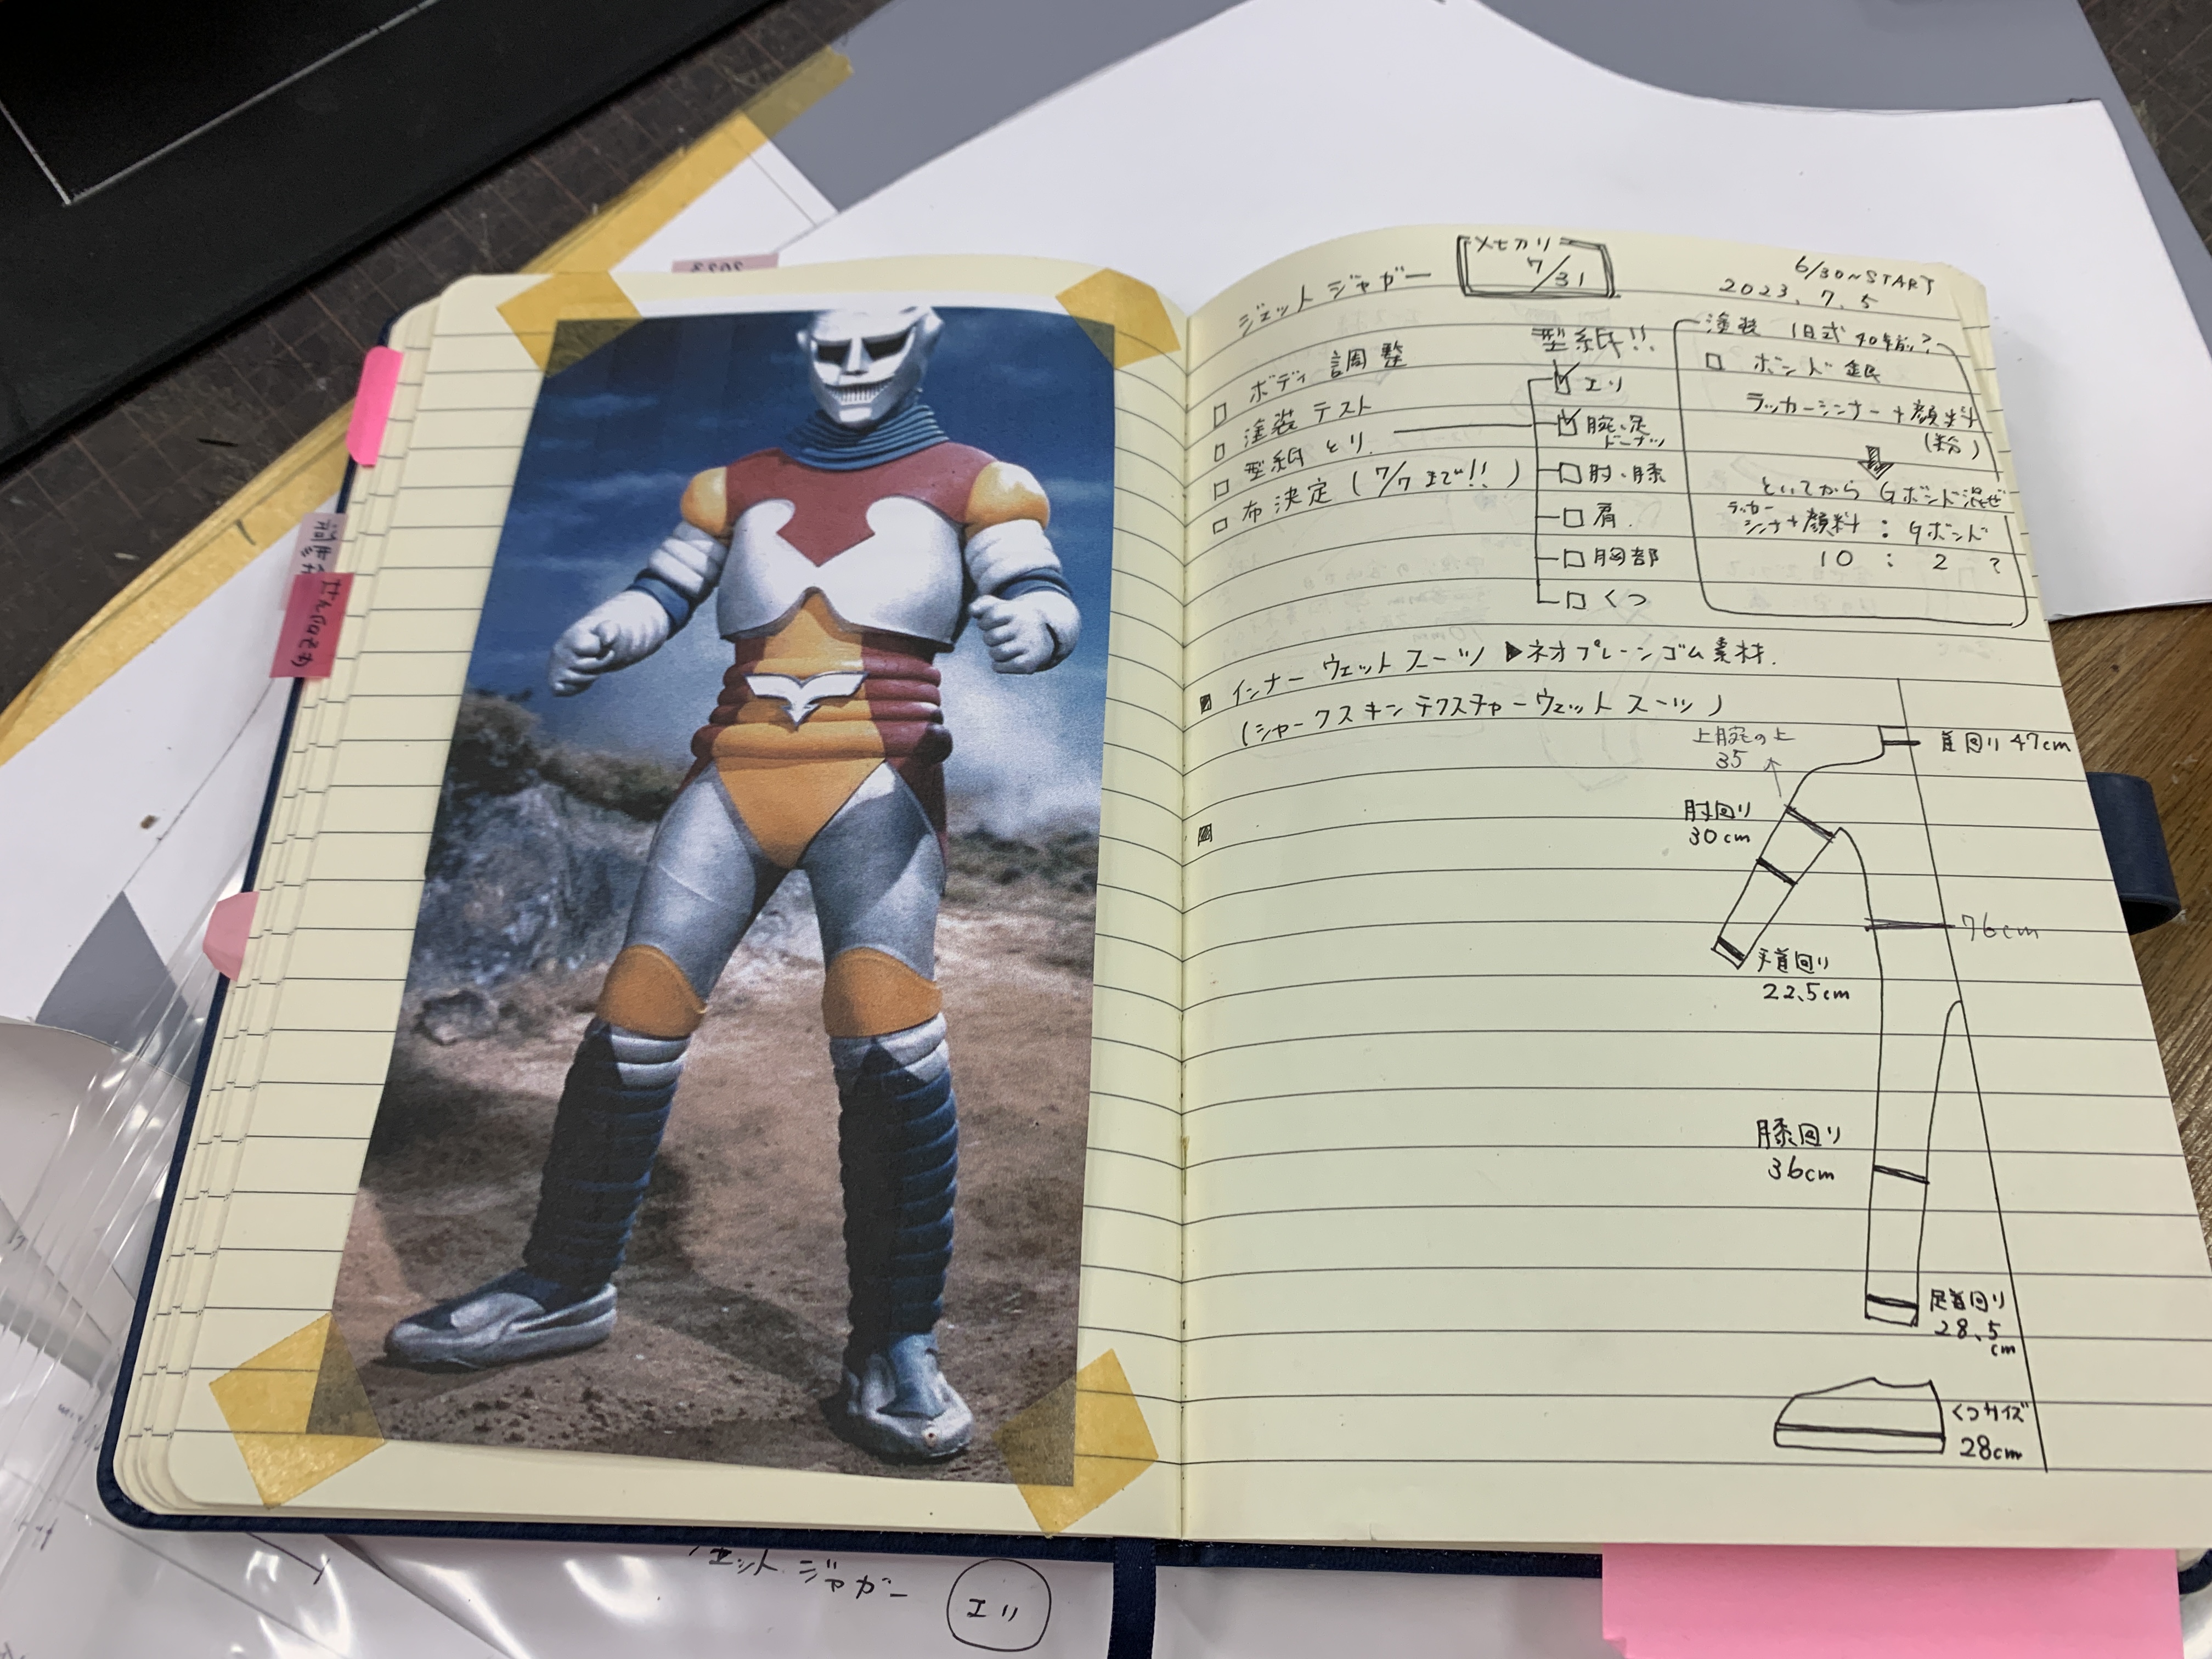 ジェットジャガー
〆切り
7/31
6/30~START
2023.7.5
□ ボディ調整
□ 塗装テスト
□ 型紙とり
□ 布決定(7/7まで!!)
型紙!!
☑ エリ
☑ 腕・足
ドーナッツ
□ 肘・膝
□ 肩
□ 胸部
□ くつ
塗装 旧式 40年前?
□ ボンド
ラッカーシンナー+顔料
(粉)
といてから Gボンド混ぜ
ラッカー
シンナー+顔料:Gボンド
10 : 2 ?
インナー ウェットスーツ ▶ネオプレーンゴム素材.
(シャークスキンテクスチャーウェットスーツ)
上腕の上
35
首回り 47cm
肘回り
30cm
76cm
手首回り
22.5cm
膝回り
36cm
足首回り
28.5
cm
くつサイズ
28cm
ェットジャガー
エリ